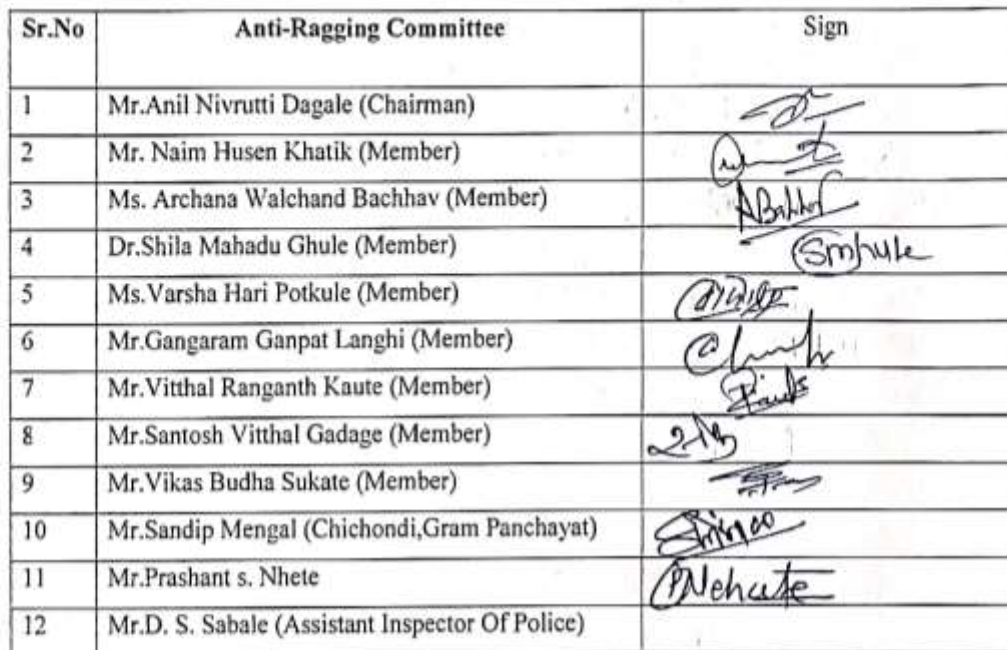 Sr.No Anti-Ragging Committee Sign
1 Mr.Anil Nivrutti Dagale (Chairman)
2 Mr. Naim Husen Khatik (Member)
3 Ms. Archana Walchand Bachhav (Member)
4 Dr.Shila Mahadu Ghule (Member)
5 Ms.Varsha Hari Potkule (Member)
6 Mr.Gangaram Ganpat Langhi (Member)
7 Mr.Vitthal Ranganth Kaute (Member)
8 Mr.Santosh Vitthal Gadage (Member)
9 Mr.Vikas Budha Sukate (Member)
10 Mr.Sandip Mengal (Chichondi,Gram Panchayat)
11 Mr.Prashant s. Nhete PNehete
12 Mr.D. S. Sabale (Assistant Inspector Of Police)